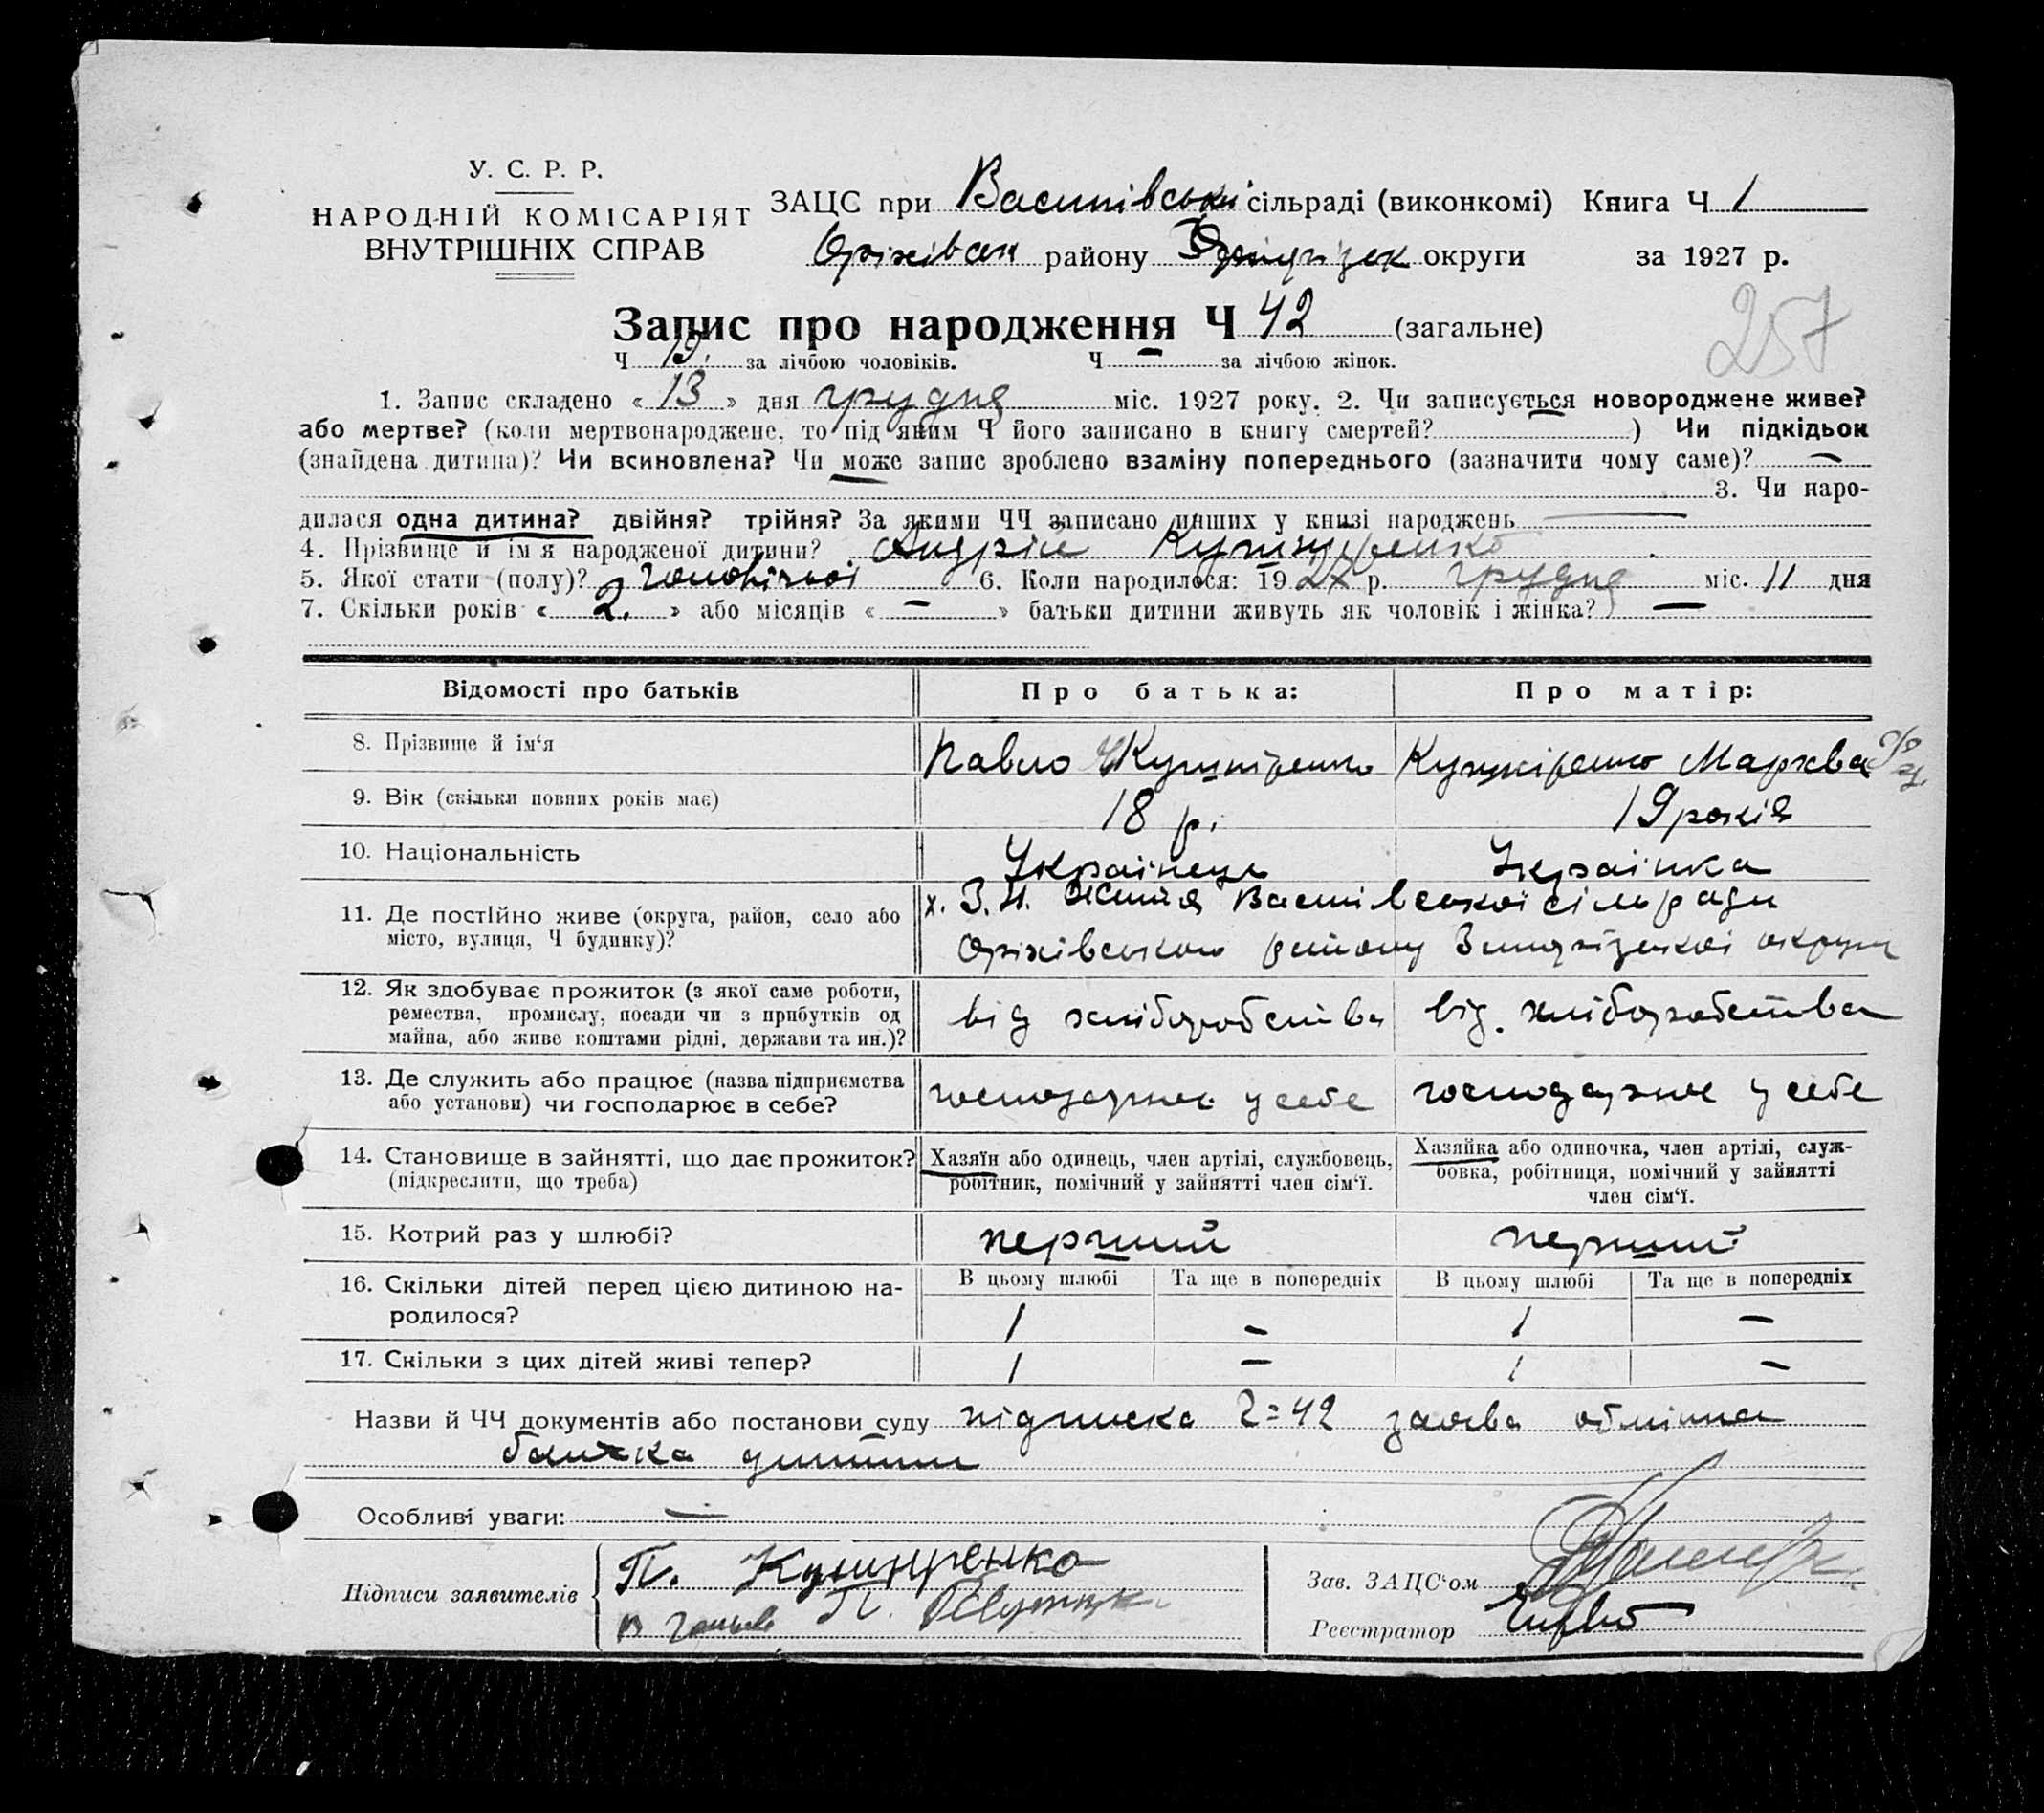 У. С. Р. Р.
НАРОДНІЙ КОМІСАРІЯТ
ВНУТРІШНІХ СПРАВ
ЗАЦС при сільраді (виконкомі) Книга Ч 1
району округи за 1927 р.
Запис про народження Ч 42 (загальне)
257
Ч 19. за лічбою чоловіків. Ч — за лічбою жінок.
1. Запис складено « 13 » дня грудня міс. 1927 року. 2. Чи записується новороджене живе?
або мертве? (коли мертвонароджене, то під яким Ч його записано в книгу смертей? ) Чи підкідьок
(знайдена дитина)? Чи всиновлена? Чи може запис зроблено взаміну попереднього (зазначити чому саме)? —
3. Чи наро-
дилася одна дитина? двійня? трійня? За якими ЧЧ записано инших у книзі народжень —
4. Прізвище й ім'я народженої дитини? Андрій
5. Якої стати (полу)? чоловічої 6. Коли народилося: 19 27 р. грудня міс. 11 дня
7. Скільки років « 2. » або місяців « — » батьки дитини живуть як чоловік і жінка? —
Відомості про батьків Про батька: Про матір:
8. Прізвище й ім'я Павло
9. Вік (скільки повних років має) 18 р. 19 років
10. Національність Українець Українка
11. Де постійно живе (округа, район, село або
місто, вулиця, Ч будинку)?
х. З. Н. Життя сільради
Оріхівського району округи
12. Як здобуває прожиток (з якої саме роботи,
ремества, промислу, посади чи з прибутків од
майна, або живе коштами рідні, держави та ин.)?
від хліборобства від хліборобства
13. Де служить або працює (назва підприємства
або установи) чи господарює в себе?
господарює у себе господарює у себе
14. Становище в зайнятті, що дає прожиток?
(підкреслити, що треба)
Хазяїн або одинець, член артілі, службовець,
робітник, помічний у зайнятті член сім'ї.
Хазяйка або одиночка, член артілі, служ-
бовка, робітниця, помічний у зайнятті
член сім'ї.
15. Котрий раз у шлюбі? перший перший
16. Скільки дітей перед цією дитиною на-
родилося?
В цьому шлюбі Та ще в попередніх В цьому шлюбі Та ще в попередніх
1 — 1 —
17. Скільки з цих дітей живі тепер? 1 — 1 —
Назви й ЧЧ документів або постанови суду підписка Ч=42 заява
батька дитини
Особливі уваги: —
Підписи заявителів П.
П.
Зав. ЗАЦС'ом
Реєстратор